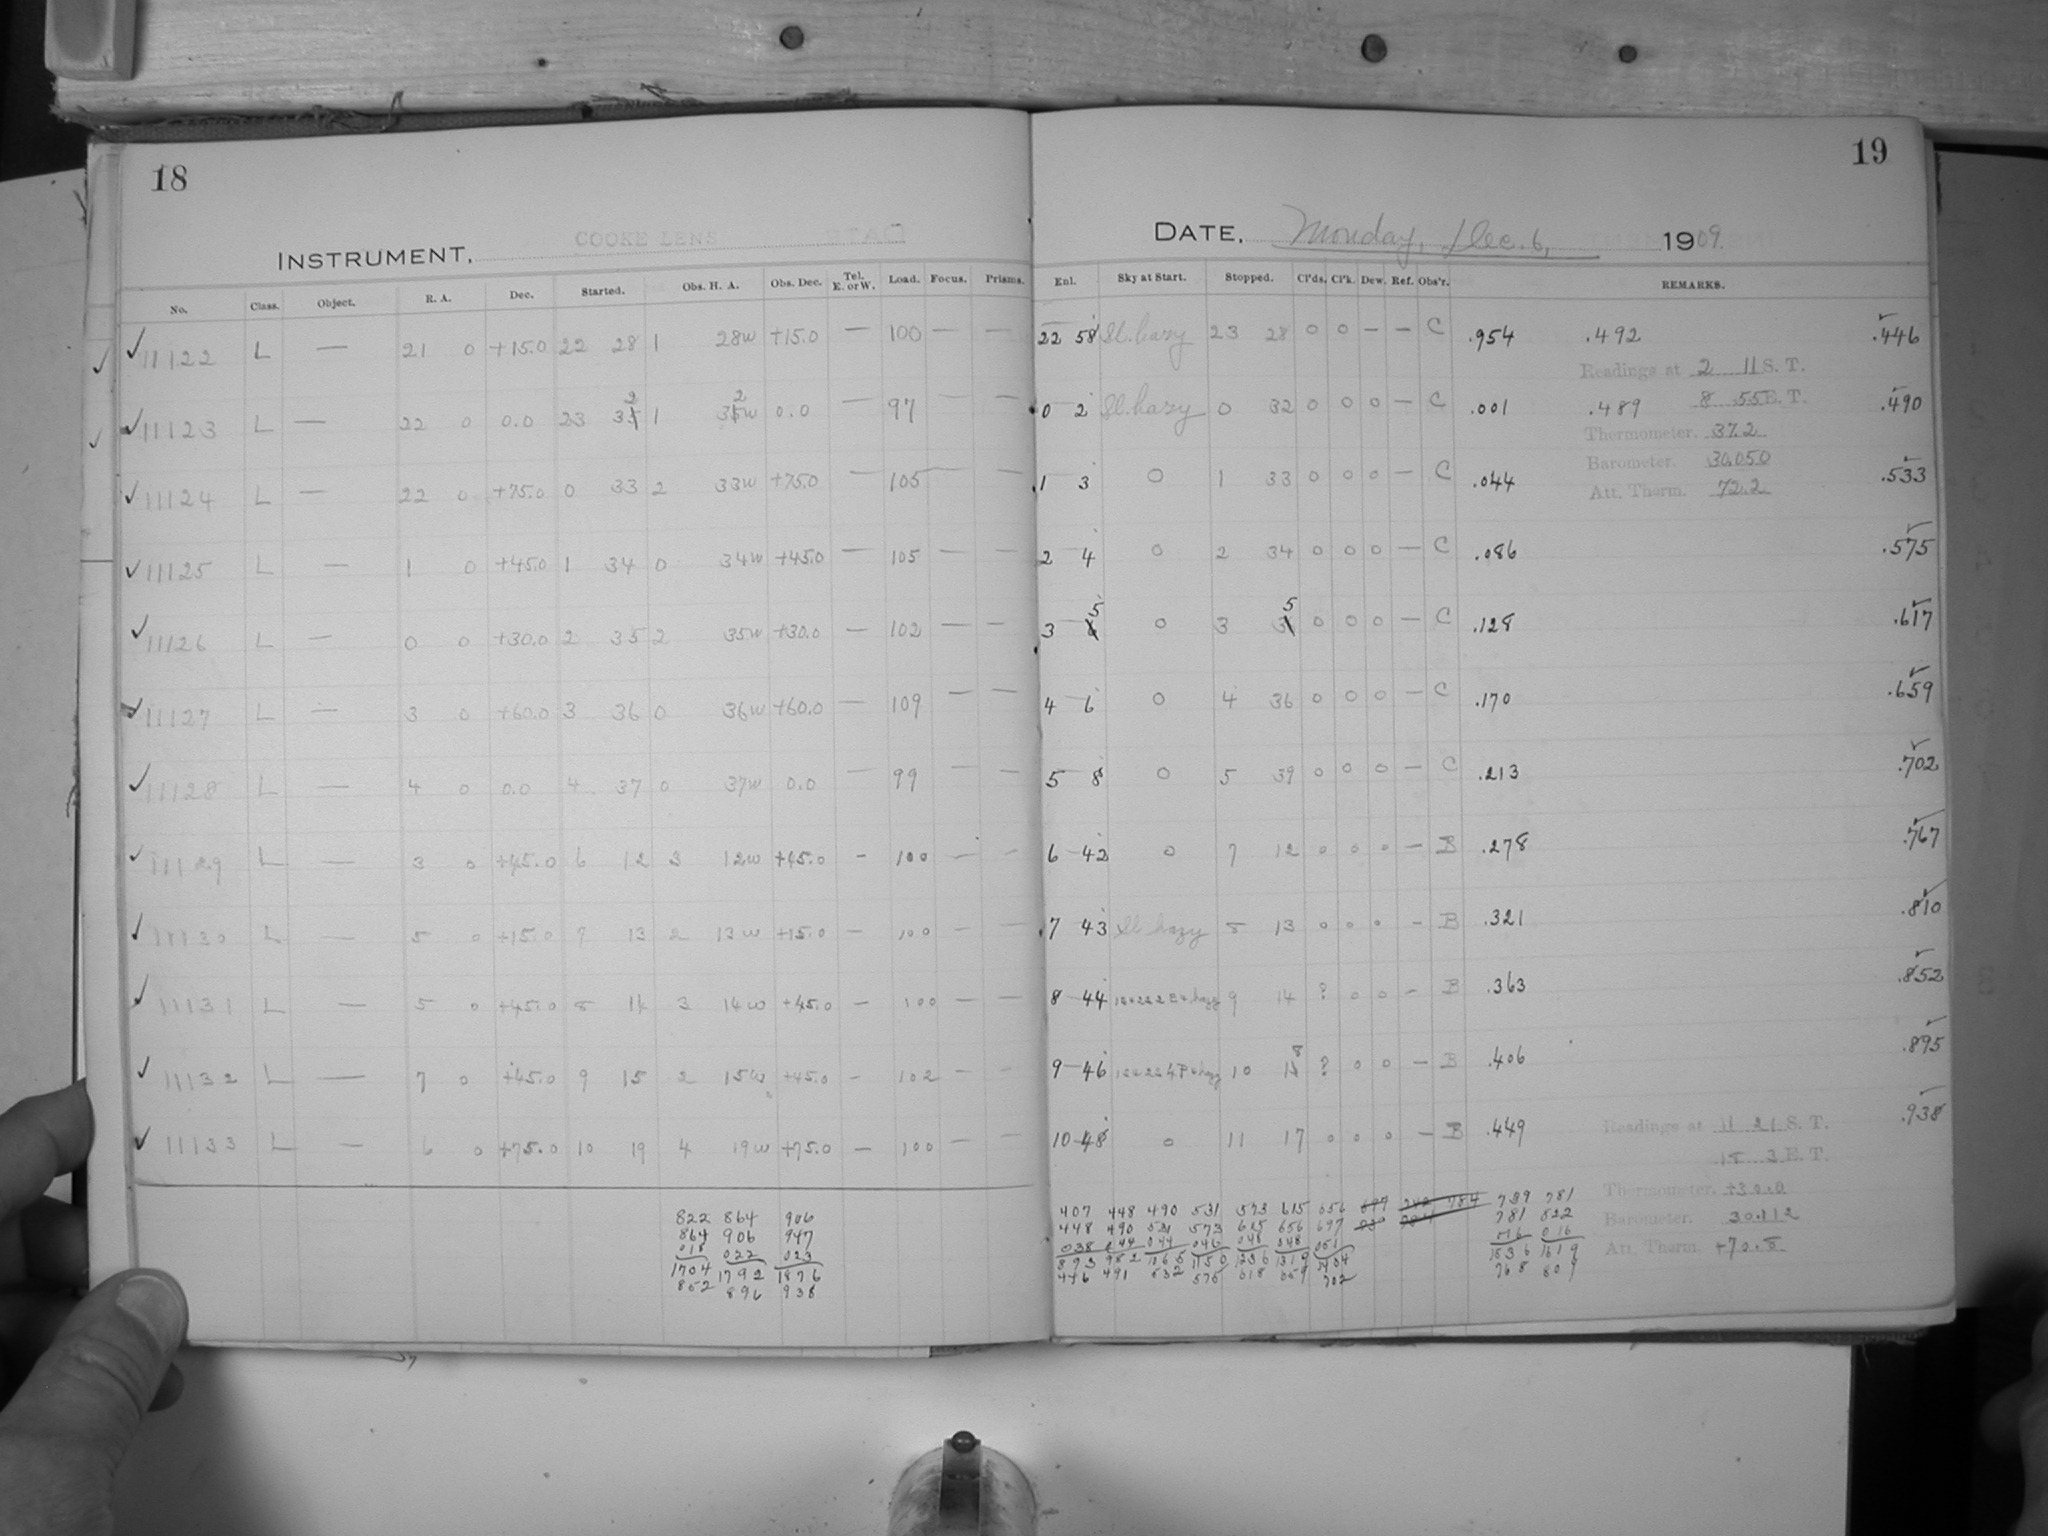 18
19
INSTRUMENT, COOKE LENS
DATE, Monday, Dec. 6, 1909.
No. Class. Object. R. A. Dec. Started. Obs. H. A. Obs. Dec. Tel. E. or W. Load. Focus. Prisms. Enl. Sky at Start. Stopped. Cl'ds. Cl'k. Dew. Ref. Obs'r. REMARKS.
✓ 11122 L — 21 0 +15.0 22 28 1 28w +15.0 — 100 — — 22 58 Sl. hazy 23 28 0 0 — — C .954 .492 .446
Readings at 2 11 S. T.
✓ 11123 L — 22 0 0.0 23 32 1 32w 0.0 — 97 — — 0 2 Sl. hazy 0 32 0 0 0 — C .001 .489 8 55 E. T. .490
Thermometer. 37.2
Barometer. 30.050
✓ 11124 L — 22 0 +75.0 0 33 2 33w +75.0 — 105 — — 1 3 0 1 33 0 0 0 — C .044 .533
Att. Therm. 72.2
✓ 11125 L — 1 0 +45.0 1 34 0 34w +45.0 — 105 — — 2 4 0 2 34 0 0 0 — C .086 .575
✓ 11126 L — 0 0 +30.0 2 35 2 35w +30.0 — 102 — — 3 5 0 3 35 0 0 0 — C .128 .617
✓ 11127 L — 3 0 +60.0 3 36 0 36w +60.0 — 109 — — 4 6 0 4 36 0 0 0 — C .170 .659
✓ 11128 L — 4 0 0.0 4 37 0 37w 0.0 — 99 — — 5 8 0 5 39 0 0 0 — C .213 .702
✓ 11129 L — 3 0 +45.0 6 12 3 12w +45.0 — 100 — — 6 42 0 7 12 0 0 0 — B .278 .767
✓ 11130 L — 5 0 +15.0 7 13 2 13w +15.0 — 100 — — 7 43 Sl hazy 8 13 0 0 0 — B .321 .810
✓ 11131 L — 5 0 +45.0 8 14 3 14w +45.0 — 100 — — 8 44 9 14 ? 0 0 — B .363 .852
✓ 11132 L — 7 0 +45.0 9 15 2 15w +45.0 — 102 — — 9 46 10 18 ? 0 0 — B .406 .895
✓ 11133 L — 6 0 +75.0 10 19 4 19w +75.0 — 100 — — 10 48 0 11 17 0 0 0 — B .449 .938
Readings at 11 21 S. T.
18 3 E. T.
Thermometer. +30.0
Barometer. 30.112
Att. Therm. +70.8
822 864 906
864 906 947
018 022 023
1704 1792 1876
852 896 938
407 448 490 531 573 615 656 697 739 781
448 490 531 573 615 656 697 781 822
038 044 044 046 048 048 051 016 016
893 982 1065 1150 1236 1319 1404 1536 1619
446 491 532 575 618 659 702 768 809